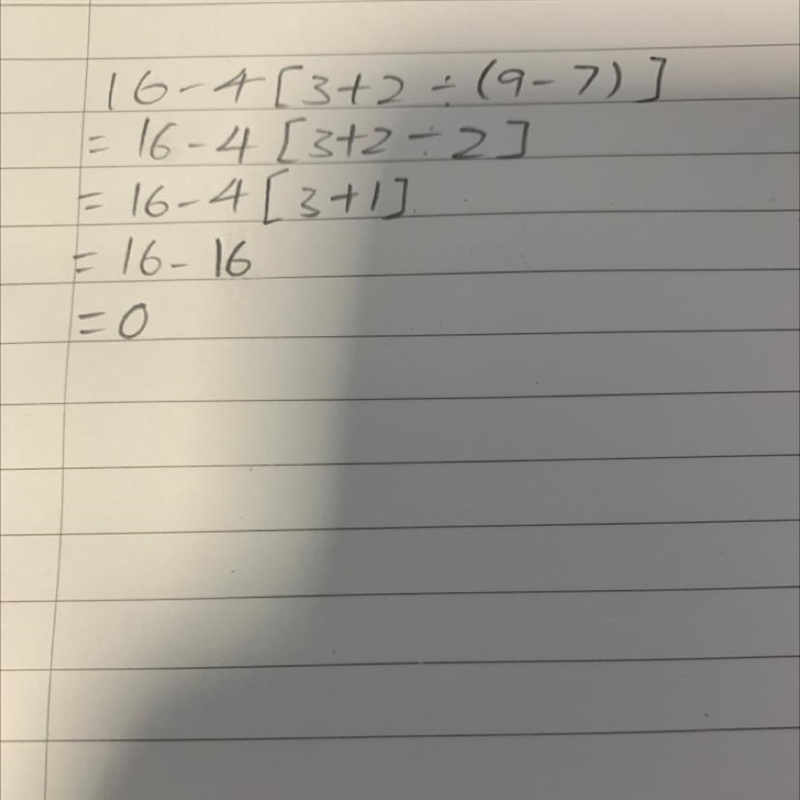 16-4[3+2÷(9-7)]
=16-4[3+2÷2]
=16-4[3+1]
=16-16
=0